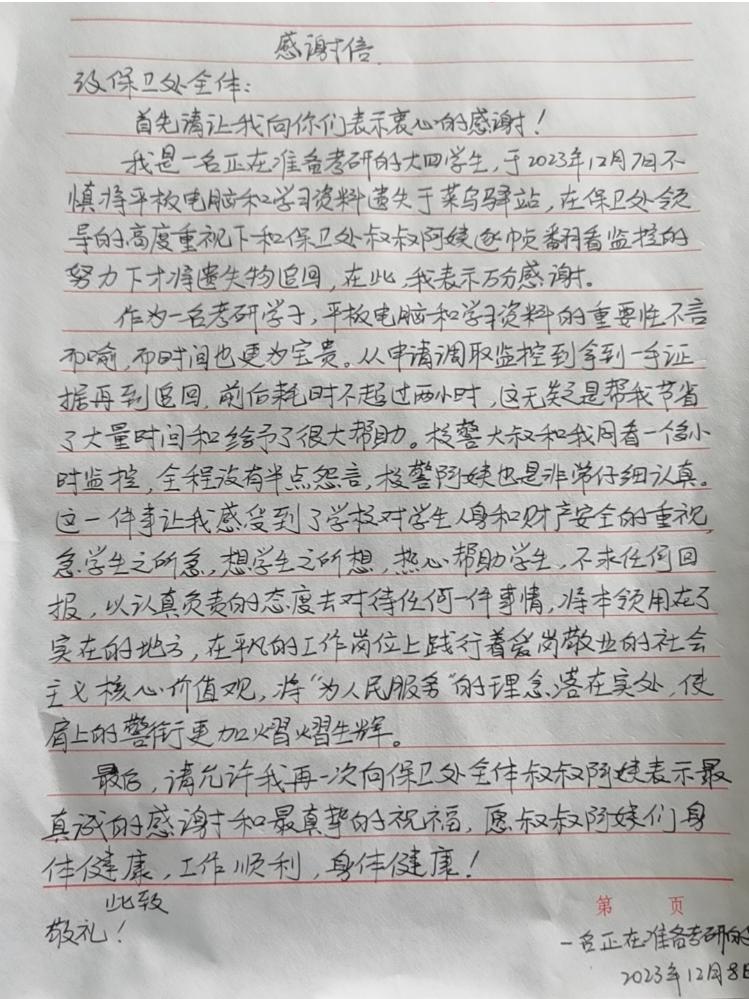 感谢信
致保卫处全体：
首先请让我向你们表示衷心的感谢！
我是一名正在准备考研的大四学生，于2023年12月7日不
慎将平板电脑和学习资料遗失于菜鸟驿站，在保卫处领
导的高度重视下和保卫处叔叔阿姨逐帧翻看监控的
努力下才将遗失物追回，在此，我表示万分感谢。
作为一名考研学子，平板电脑和学习资料的重要性不言
而喻，而时间也更为宝贵。从申请调取监控到拿到一手证
据再到追回，前后耗时不超过两小时，这无疑是帮我节省
了大量时间和给予了很大帮助。校警大叔和我同看一个多小
时监控，全程没有半点怨言，校警阿姨也是非常仔细认真。
这一件事让我感受到了学校对学生人身和财产安全的重视，
急学生之所急，想学生之所想，热心帮助学生，不求任何回
报，以认真负责的态度去对待任何一件事情，将本领用在了
实在的地方，在平凡的工作岗位上践行着爱岗敬业的社会
主义核心价值观，将“为人民服务”的理念落在实处，使
肩上的警衔更加熠熠生辉。
最后，请允许我再一次向保卫处全体叔叔阿姨表示最
真诚的感谢和最真挚的祝福，愿叔叔阿姨们身
体健康，工作顺利，身体健康！
此致
第 页
敬礼！
一名正在准备考研的
2023年12月8日